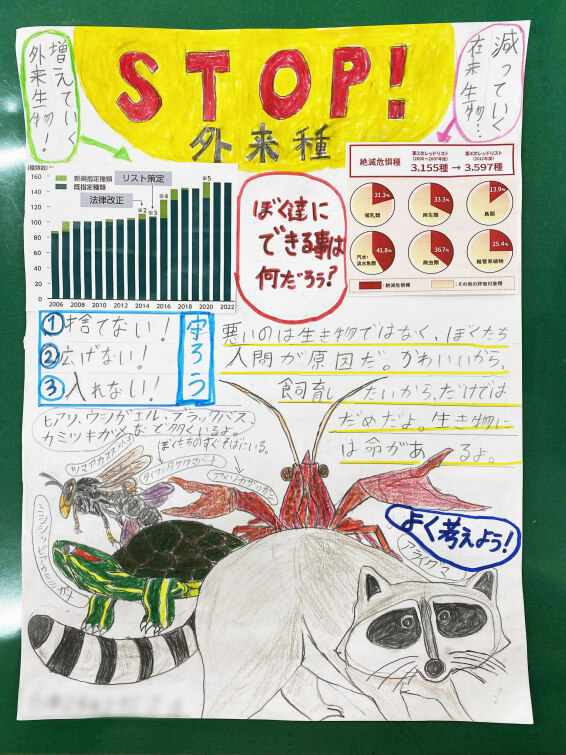 STOP!
外来種
増えていく
外来生物!
減っていく
在来生物…
(種類数)
新規指定種類
既指定種類
リスト策定
法律改正
160
140
120
100
80
60
40
20
0
※2
※3
※4
※5
2006
2008
2010
2012
2014
2016
2018
2020
2022
絶滅危惧種
第3次レッドリスト
(2006〜2007年度)
第4次レッドリスト
(2012年度)
3,155種 → 3,597種
21.3%
哺乳類
33.3%
両生類
13.9%
鳥類
41.8%
汽水・
淡水魚類
36.7%
爬虫類
25.4%
維管束植物
:絶滅危惧種
:その他の評価対象種
ぼく達に
できる事は
何だろう?
①捨てない!
②広げない!
③入れない!
守ろう
悪いのは生き物ではなく、ぼくたち
人間が原因だ。かわいいから、
飼育したいから、だけでは
だめだよ。生き物に
は命があるよ。
ヒアリ、ウシガエル、ブラックバス、
カミツキガメなど多くいるよ。
ぼくたちのすぐそばにいる。
タイワンタケクマバチ
アメリカザリガニ
ミシシッピアカミミガメ
よく考えよう!
アライグマ